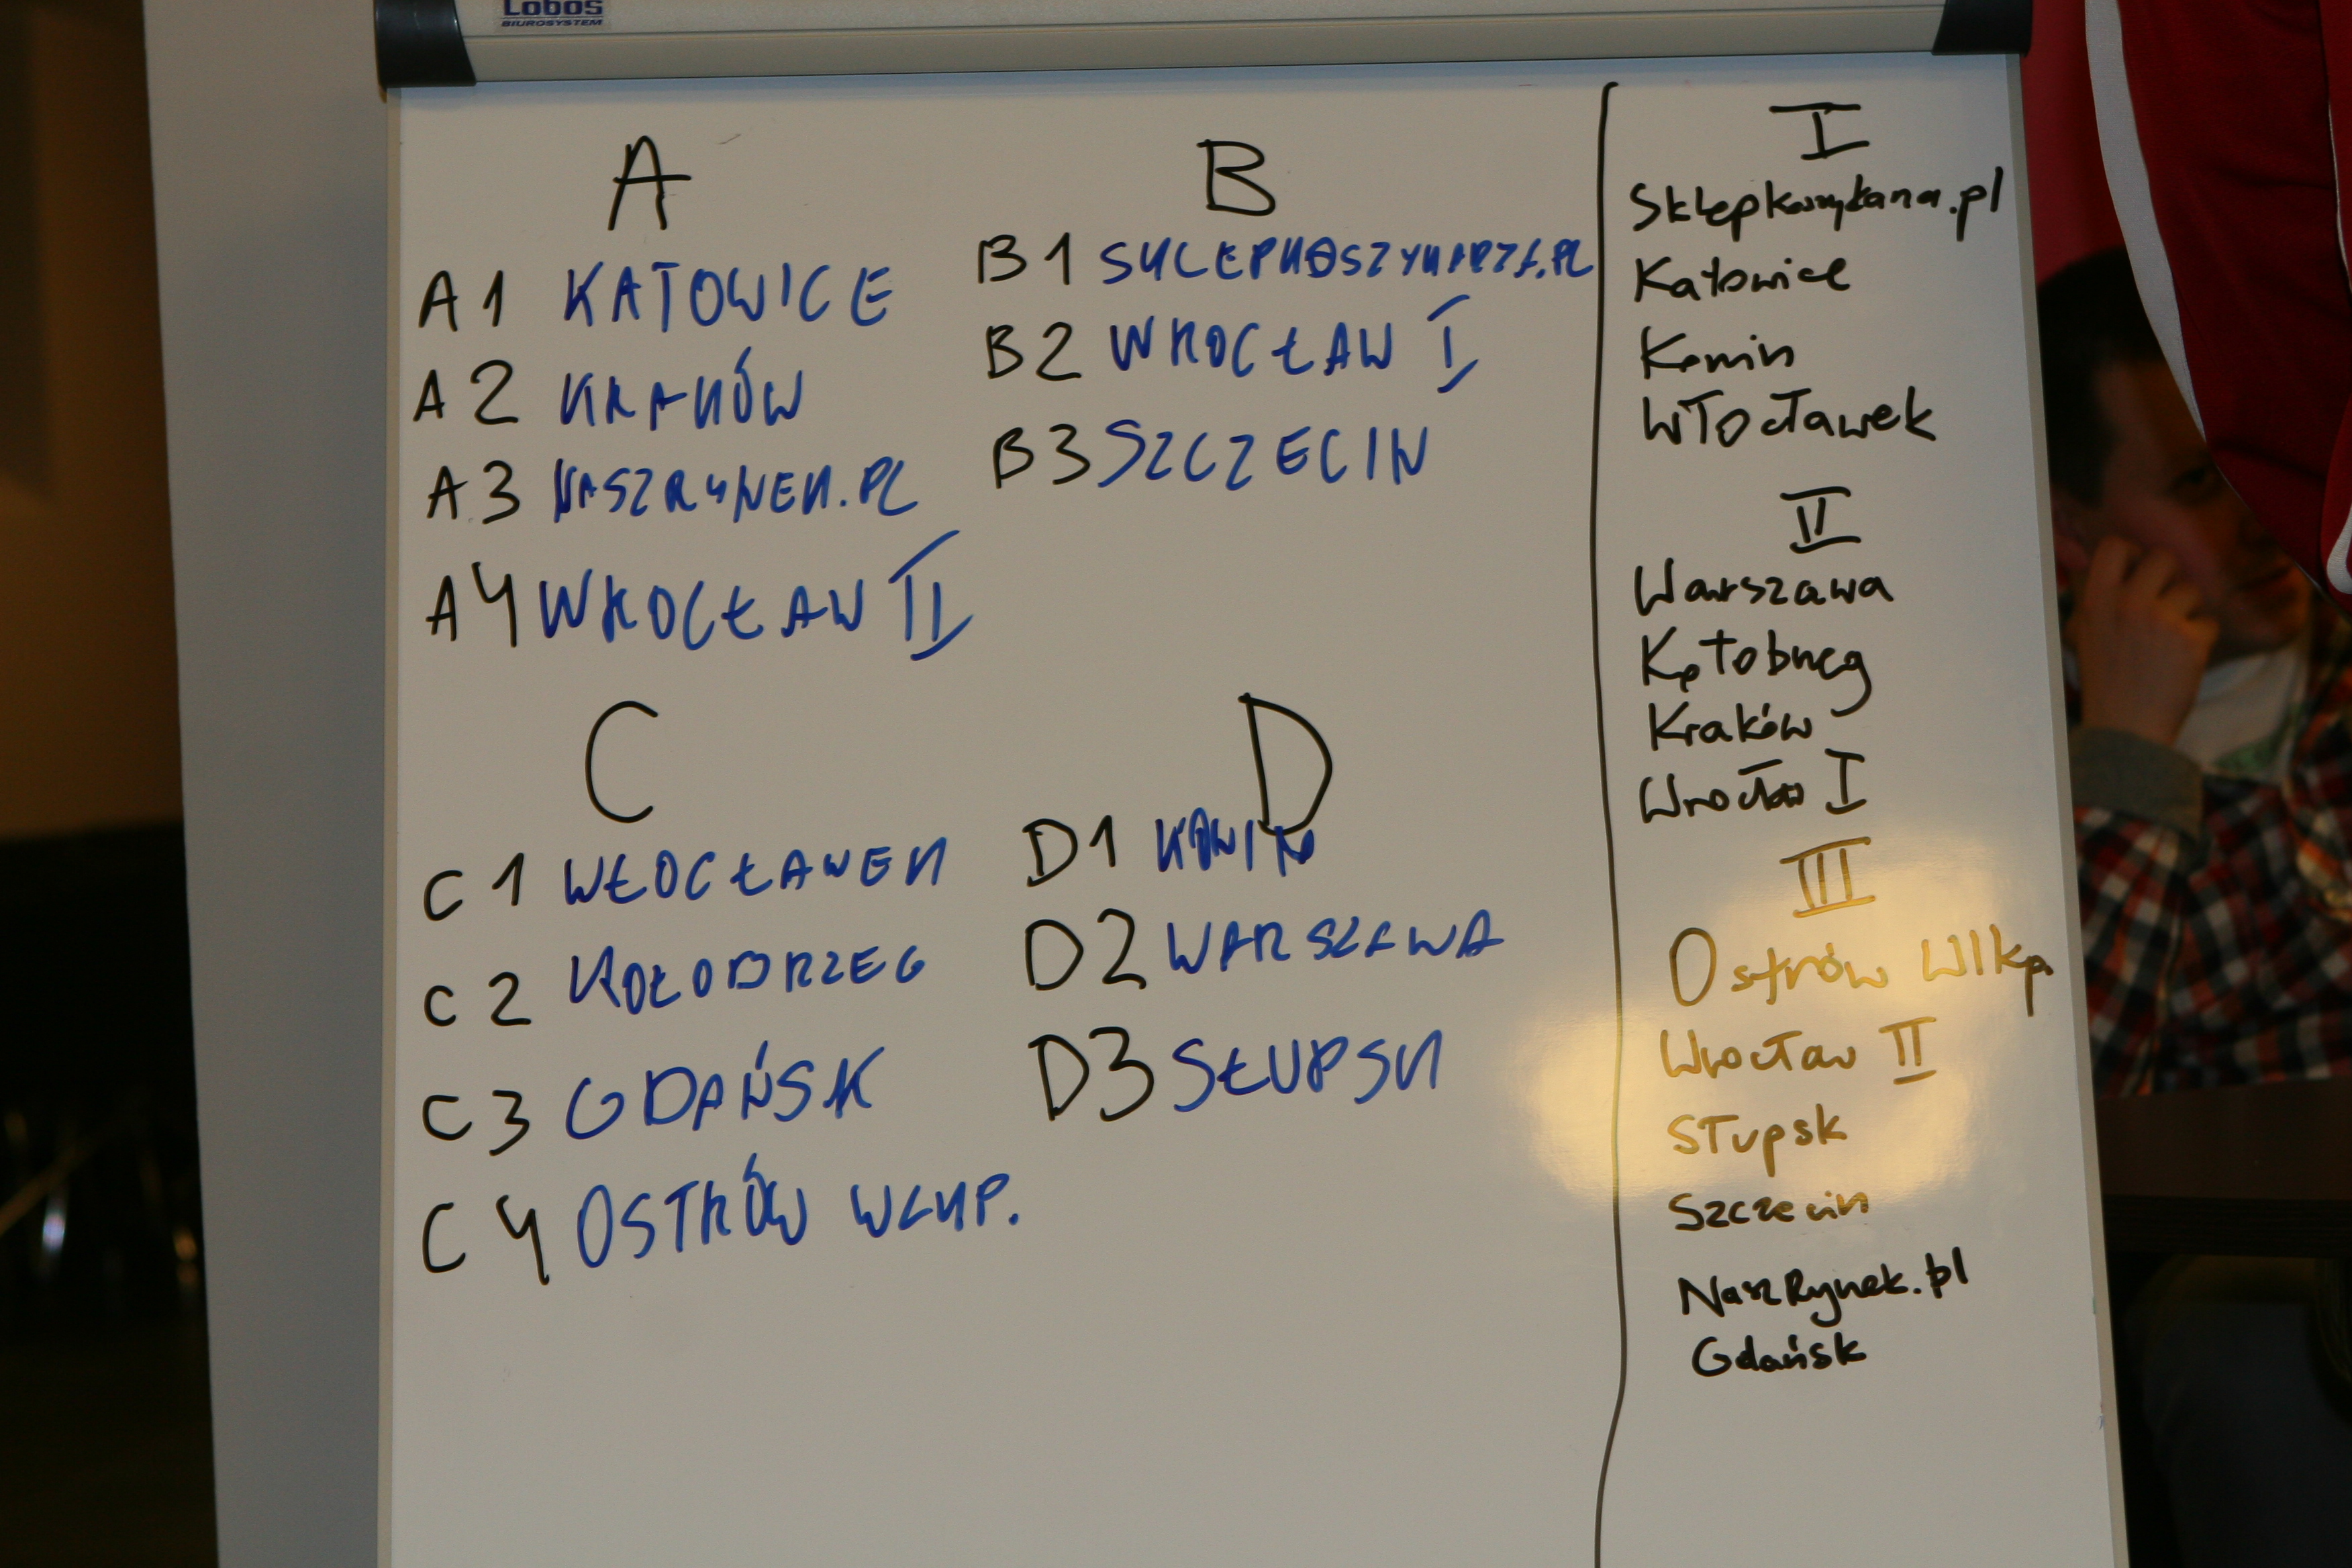 Lobos
BIUROSYSTEM
A
A1 KATOWICE
A2 KRAKÓW
A3 NASZRYNEK.PL
A4 WROCŁAW II
B
B1 SKLEPKOSZYKARZA.PL
B2 WROCŁAW I
B3 SZCZECIN
C
C1 WŁOCŁAWEK
C2 KOŁOBRZEG
C3 GDAŃSK
C4 OSTRÓW WLKP.
D
D1 KONIN
D2 WARSZAWA
D3 SŁUPSK
I
Katowice
Konin
Włocławek
II
Warszawa
Kraków
Wrocław I
III
Ostrów Wlkp
Wrocław II
Słupsk
Szczecin
NaszRynek.pl
Gdańsk